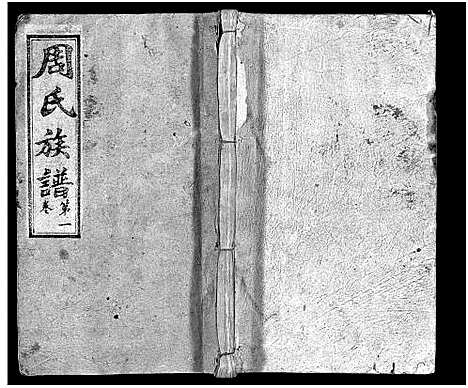 周氏族譜
第一
卷